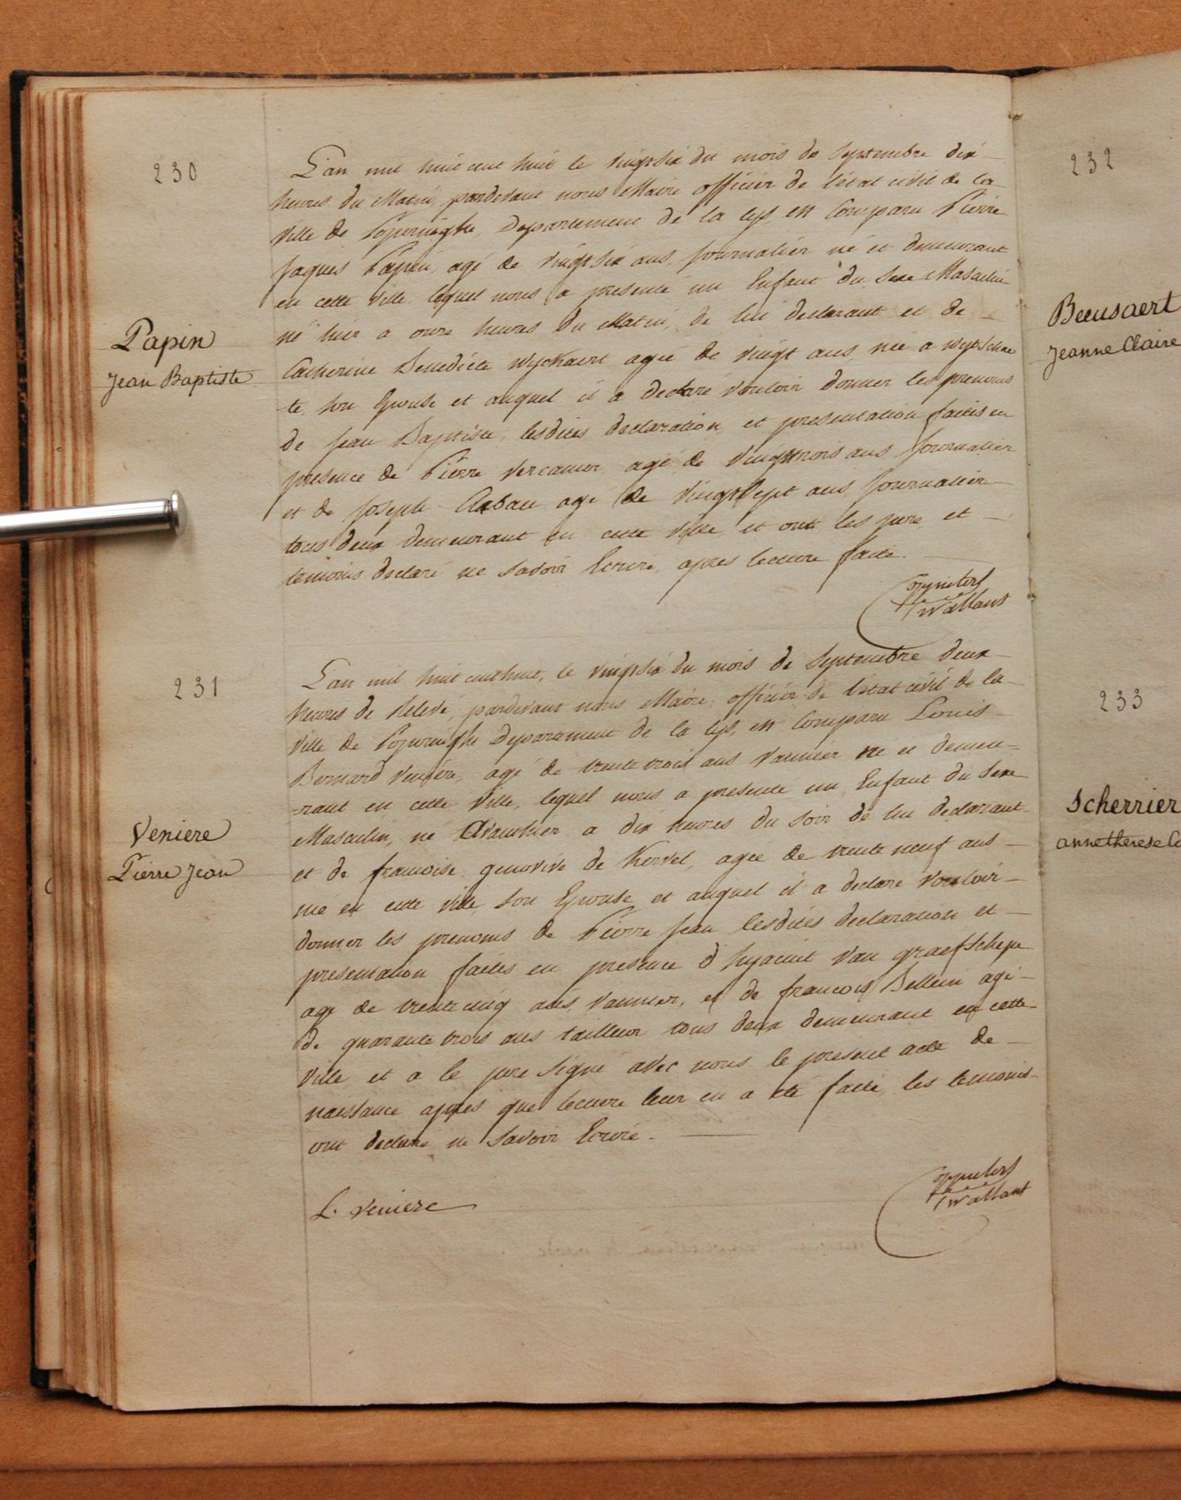 230
Papin
Jean Baptiste
L'an mil huit cent huit le vingtsix du mois de Septembre dix
heures du Matin, pardevant nous Maire officier de l'état civil de la
Ville de Poperinghe, Departement de la Lys est Comparu Pierre
Jaques Papin, agé de vingtsix ans, journalier né et demeurant
en cette ville, lequel nous a presenté un Enfant du Sexe Masculin
né hier a onze heures du Matin, de lui declarant et de
Catherine Benedicte Wyckaert agée de vingt ans, née a Wytschae
te, son Epouse et auquel il a declaré vouloir donner les prenoms
de Jean Baptiste, lesdites declaration, et presentation faites en
presence de Pierre Vercamer agé de vingttrois ans journalier
et de Joseph agé de vingtsept ans journalier
tous deux demeurant en cette ville, et ont les pere et
temoins declaré ne savoir Ecrire, apres lecture faite.
231
Veniere
Pierre Jean
L'an mil huit cent huit, le vingtsix du mois de Septembre deux
heures de Relevé, pardevant nous Maire, officier de l'état civil de la
Ville de Poperinghe Departement de la Lys, est Comparu Louis
Bernard Veniere, agé de trente trois ans Vannier né et demeu-
rant en cette Ville, lequel nous a presenté un Enfant du Sexe
Masculin, né avanthier a dix heures du soir de lui declarant
et de francoise genovive de agée de trente neuf ans
née en cette ville son Epouse et auquel il a declaré vouloir
donner les prenoms de Pierre Jean lesdites declaration et
presentation faites en presence d'hyacint Van graefschepe
agé de trentecinq ans, Vannier, et de francois Bellein agé
de quarante trois ans tailleur tous deux demeurant en cette
Ville et a le pere signé avec nous le present acte de
naissance apres que lecture leur en a été faite, les temoins
ont declaré ne savoir Ecrire.
L. Veniere
232
Beeusaert
Jeanne Claire
233
Scherrier
anne therese